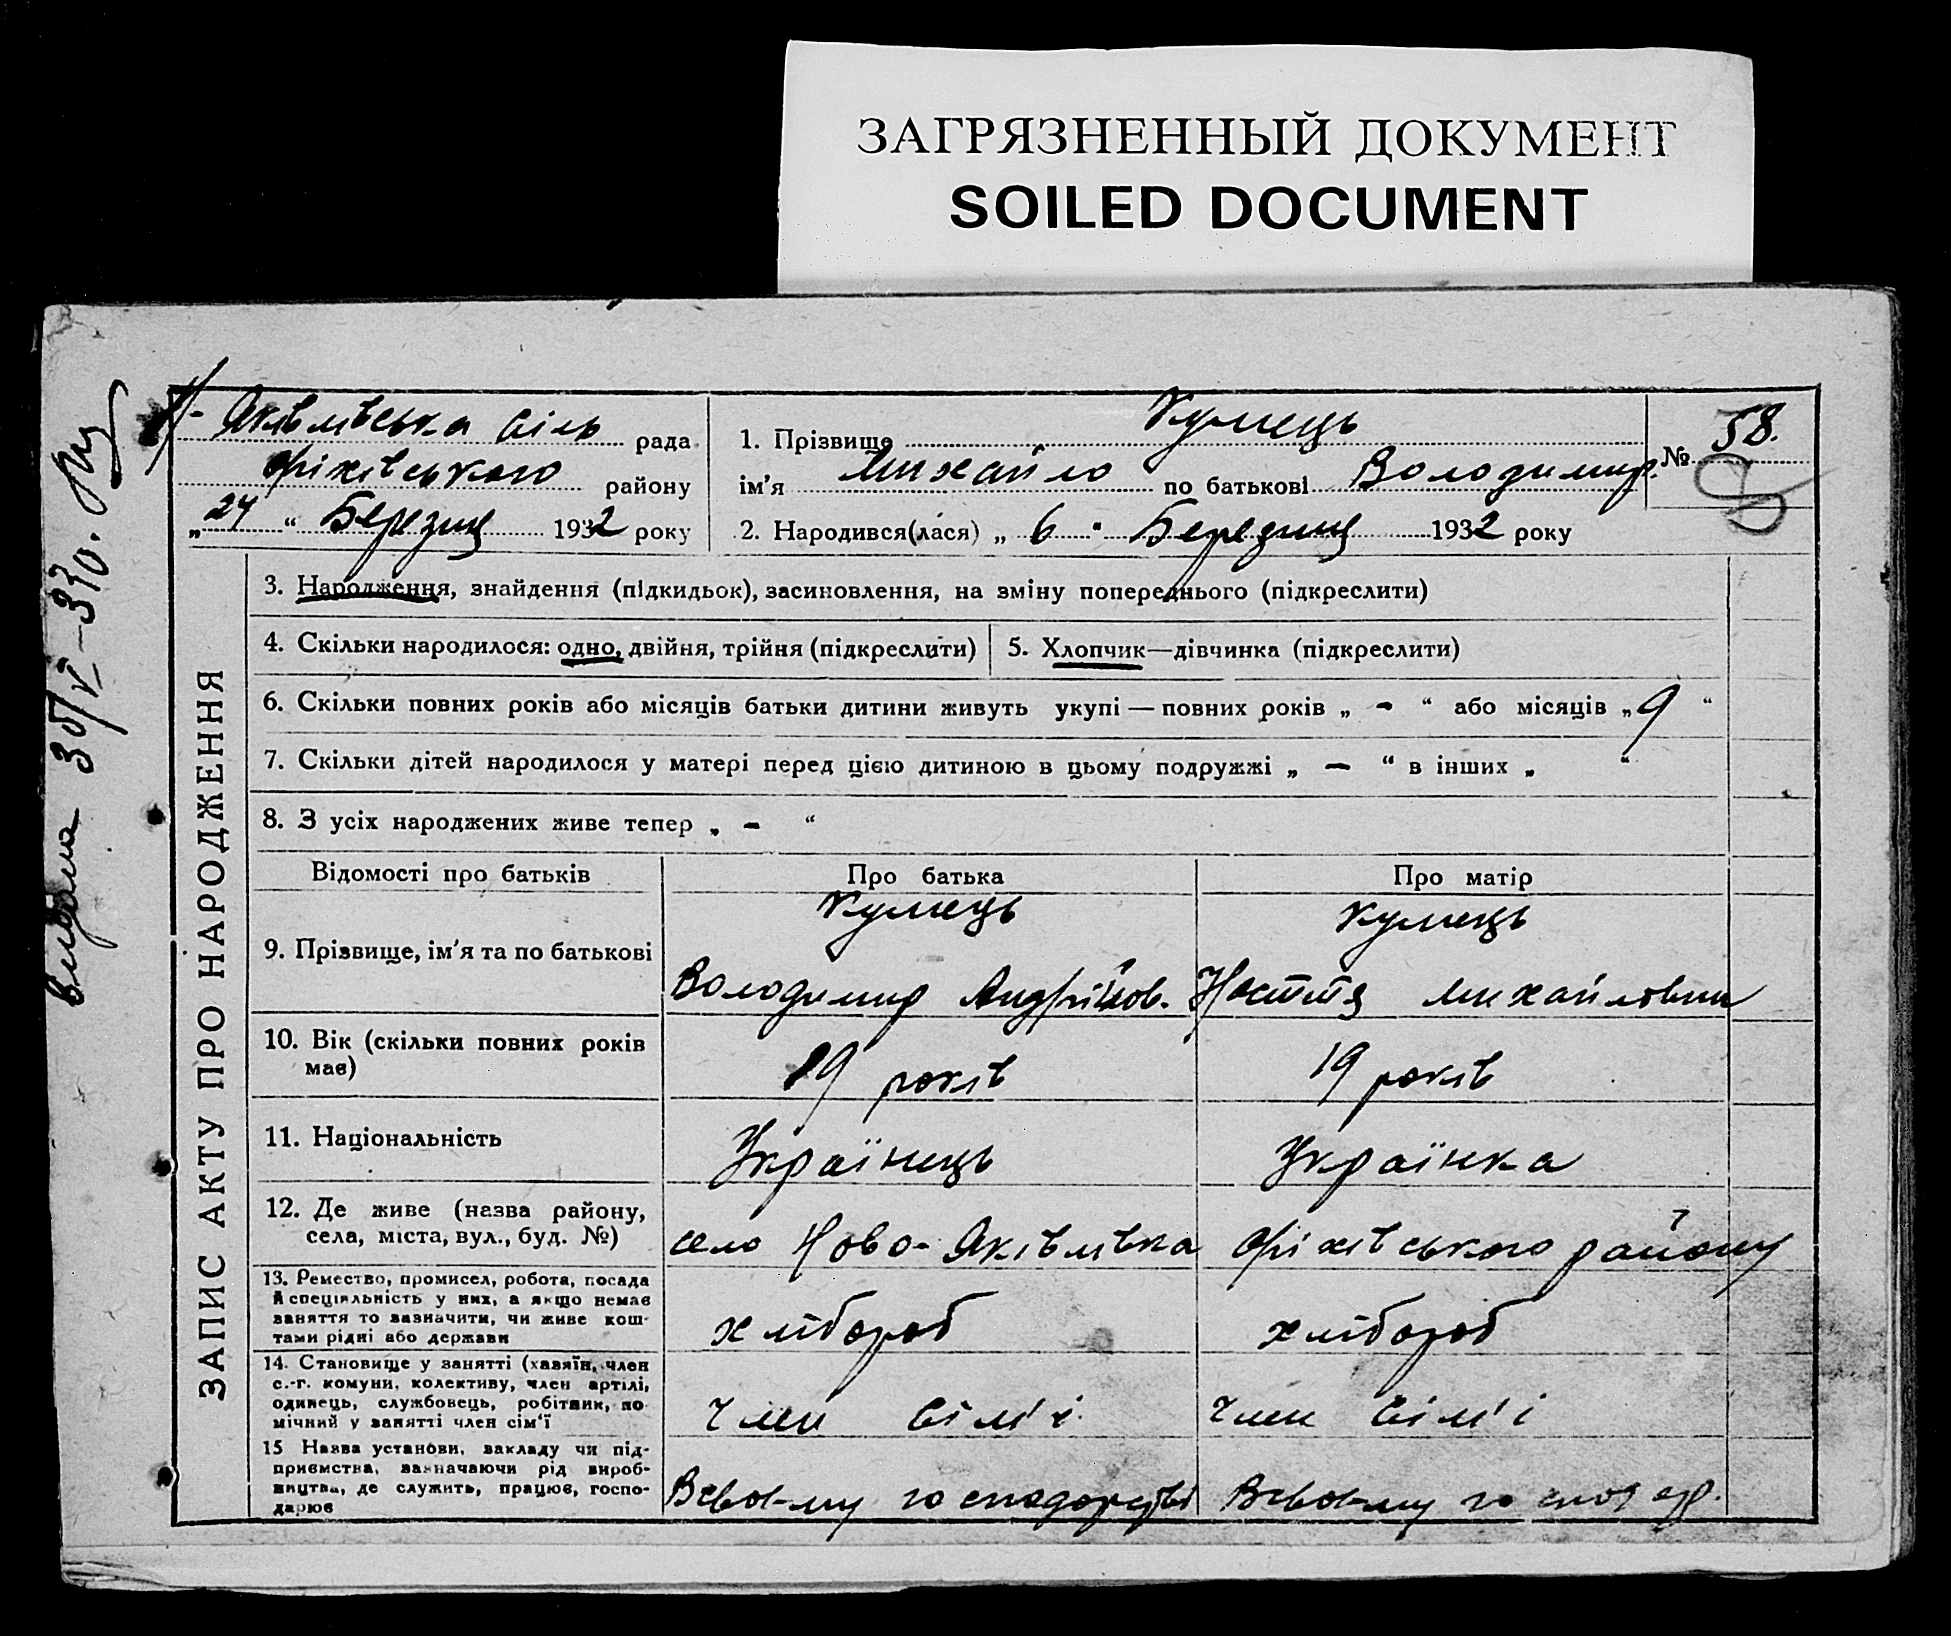 ЗАГРЯЗНЕННЫЙ ДОКУМЕНТ
SOILED DOCUMENT
Яківлівська сіль рада
Оріхівського району
„24“ Березня 1932 року
1. Прізвище Кумець
ім'я Михайло по батькові Володимир.
№ 58.
2. Народився(лася) „ 6 “ Березня 1932 року
ЗАПИС АКТУ ПРО НАРОДЖЕННЯ
3. Народження, знайдення (підкидьок), засиновлення, на зміну попереднього (підкреслити)
4. Скільки народилося: одно, двійня, трійня (підкреслити)
5. Хлопчик—дівчинка (підкреслити)
6. Скільки повних років або місяців батьки дитини живуть укупі — повних років „ - “ або місяців „9“
7. Скільки дітей народилося у матері перед цією дитиною в цьому подружжі „ — “ в інших „ “
8. З усіх народжених живе тепер „ - “
Відомості про батьків
Про батька
Про матір
9. Прізвище, ім'я та по батькові
Кумець
Володимир Андрійов.
Кумець
Настя Михайловна
10. Вік (скільки повних років
має)
19 років
19 років
11. Національність
Українець
Українка
12. Де живе (назва району,
села, міста, вул., буд. №)
село Ново-Яківлівка Оріхівського району
13. Ремество, промисел, робота, посада
й спеціяльність у них, а якщо немає
заняття то зазначити, чи живе кош-
тами рідні або держави
хлібороб
хлібороб
14. Становище у занятті (хазяїн, член
с.-г. комуни, колективу, член артілі,
одинець, службовець, робітник, по-
мічний у занятті член сім'ї
Член сім'ї
Член сім'ї
15 Назва установи, закладу чи під-
приємства, зазначаючи рід вироб-
ництва, де служить, працює, госпо-
дарює
В свой-му господарстві
В свой-му господар.